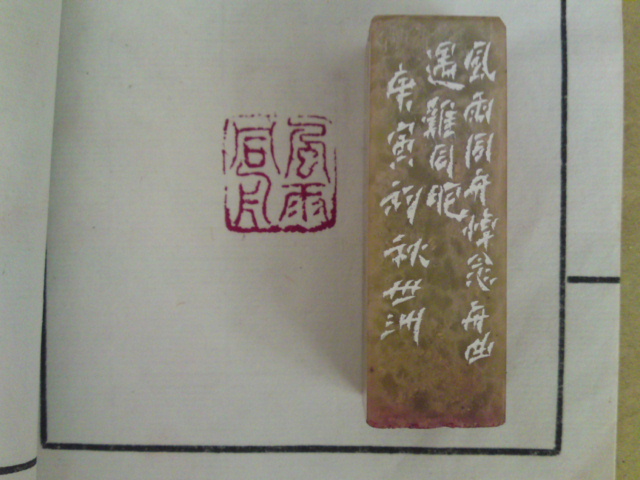 風雨
同舟
風雨同舟悼念舟曲
遇難同胞
庚寅初秋世洲